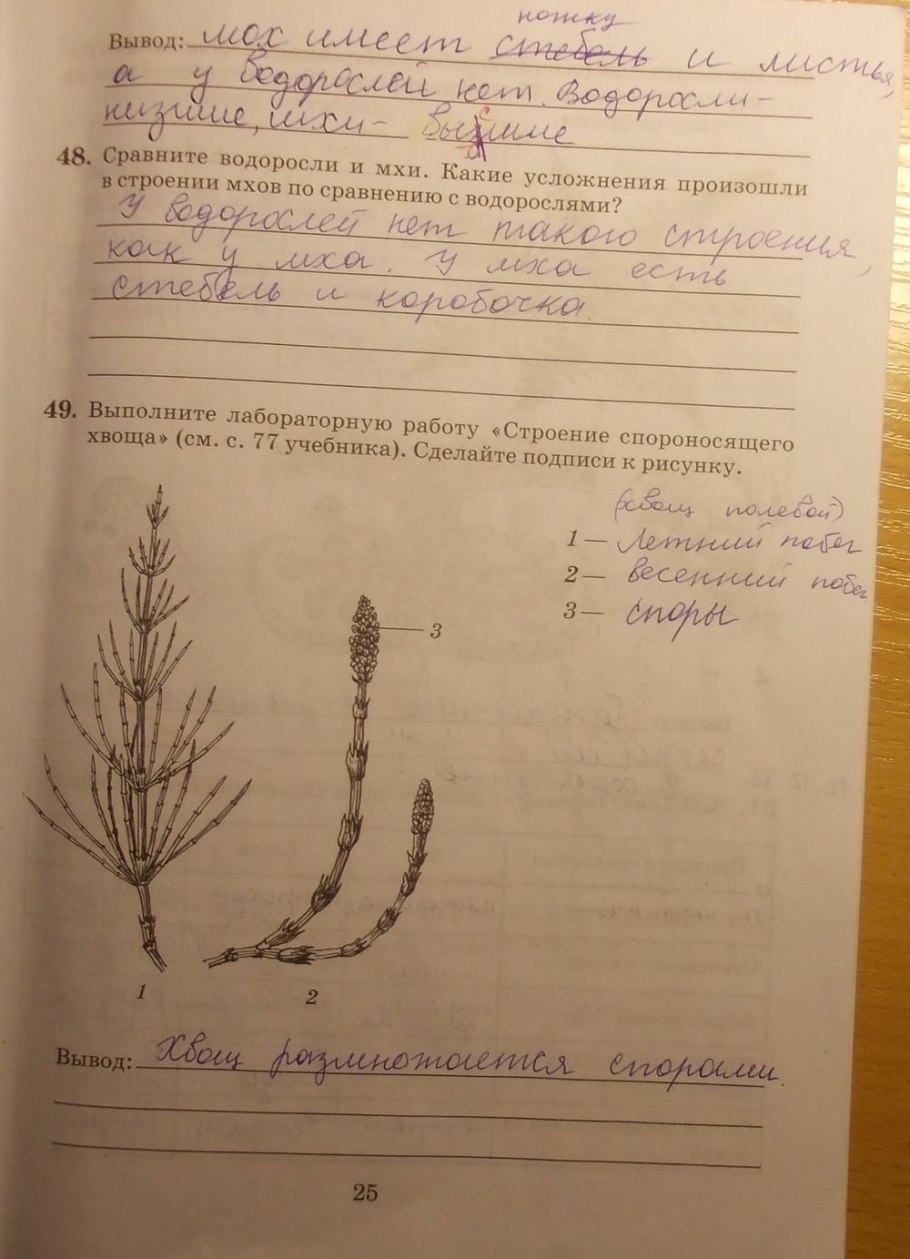 ножку
Вывод: мох имеет стебель и листья,
а у водорослей нет. Водоросли-
низшие, мхи- высшие
48. Сравните водоросли и мхи. Какие усложнения произошли
в строении мхов по сравнению с водорослями?
У водорослей нет такого строения,
как у мха. У мха есть
стебель и коробочка.
49. Выполните лабораторную работу «Строение спороносящего
хвоща» (см. с. 77 учебника). Сделайте подписи к рисунку.
(хвощ полевой)
1 — Летний побег
2 — весенний побег
3 — споры
3
1
2
Вывод: Хвощ размножается спорами.
25